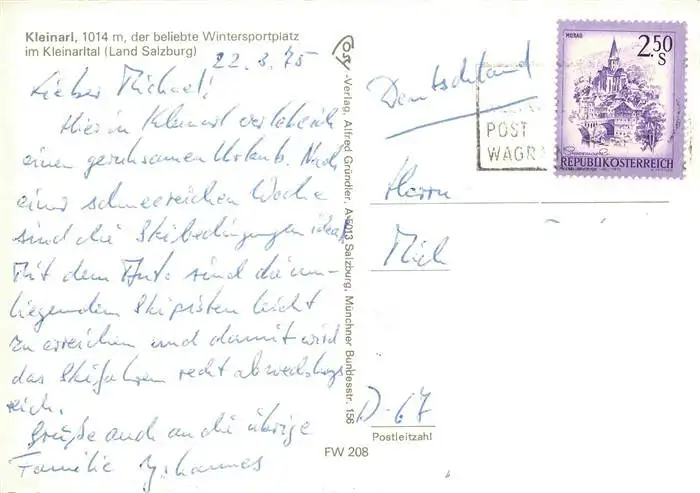 Kleinarl, 1014 m, der beliebte Wintersportplatz
im Kleinarltal (Land Salzburg)
22.3.75
Lieber Michael!
Hier in Kleinarl verlebe ich
einen geruhsamen Urlaub. Nach
einer schneereichen Woche
sind die Skibedingungen ideal.
Mit dem Auto sind die um-
liegenden Skipisten leicht
zu erreichen und damit wird
das Skifahren recht abwechslungs
reich.
Grüße auch an die übrige
Familie Johannes
-Verlag, Alfred Gründler, A-5013 Salzburg, Münchner Bundesstr. 156
FW 208
Deutschland
POST
WAGR
MURAU
2.50
S
REPUBLIK ÖSTERREICH
Herrn
Mich
D-67
Postleitzahl